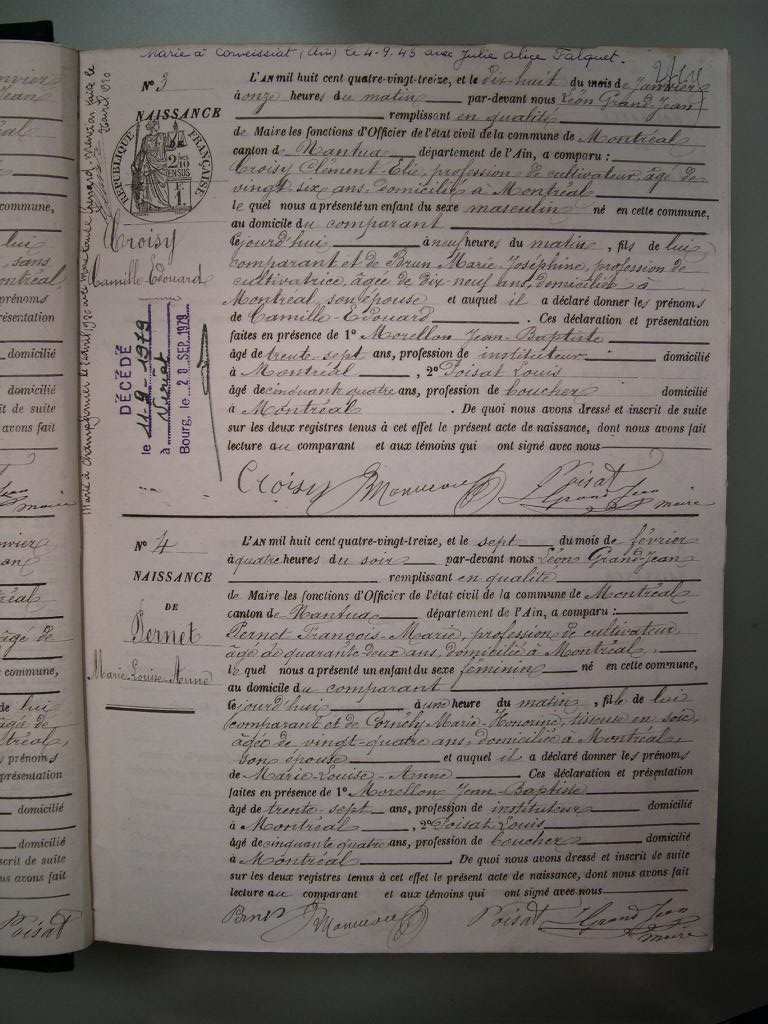 Marié à Corveissiat (Ain) le 4-9-45 avec Julie Alice Falquet.
N° 3
NAISSANCE
RÉPUBLIQUE FRANÇAISE
2/10
EN SUS
1F
Croisy
Camille Edouard
DÉCÉDÉ
le 11-9-1979
à
Bourg, le 20 SEP. 1979
L'AN mil huit cent quatre-vingt-treize, et le dix huit du mois de Janvier
à onze heures du matin par-devant nous Léon Grand-Jean
remplissant en qualité
de Maire les fonctions d'Officier de l'état civil de la commune de Montréal
canton de Nantua département de l'Ain, a comparu :
Croisy Clément Elie, profession de cultivateur, âgé de
vingt six ans, domicilié à Montréal
le quel nous a présenté un enfant du sexe masculin né en cette commune,
au domicile du comparant
cejourd'hui à neuf heures du matin, fils de lui
comparant et de Brun Marie Joséphine, profession de
cultivatrice, âgée de dix neuf ans, domiciliée à
Montréal, son épouse et auquel il a déclaré donner les prénoms
de Camille Edouard. Ces déclaration et présentation
faites en présence de 1° Morellon Jean-Baptiste
âgé de trente-sept ans, profession de instituteur domicilié
à Montréal, 2° Poisat Louis
âgé de cinquante quatre ans, profession de boucher domicilié
à Montréal. De quoi nous avons dressé et inscrit de suite
sur les deux registres tenus à cet effet le présent acte de naissance, dont nous avons fait
lecture au comparant et aux témoins qui ont signé avec nous
Croisy Poisat
L Grand Jean
maire
N° 4
NAISSANCE
DE
Pernet
Marie Louise-Anne
L'AN mil huit cent quatre-vingt-treize, et le sept du mois de février
à quatre heures du soir par-devant nous Léon Grand-Jean
remplissant en qualité
de Maire les fonctions d'Officier de l'état civil de la commune de Montréal
canton de Nantua département de l'Ain, a comparu :
Pernet François-Marie, profession de cultivateur,
âgé de quarante deux ans, domicilié à Montréal,
le quel nous a présenté un enfant du sexe féminin né en cette commune,
au domicile du comparant
cejourd'hui à une heure du matin, fille de lui
comparant et de Cornély Marie-Honorine, tisseuse en soie,
âgée de vingt-quatre ans, domiciliée à Montréal,
son épouse et auquel il a déclaré donner les prénoms
de Marie Louise-Anne Ces déclaration et présentation
faites en présence de 1° Morellon Jean-Baptiste
âgé de trente sept ans, profession de instituteur domicilié
à Montréal, 2° Poisat Louis
âgé de cinquante quatre ans, profession de boucher domicilié
à Montréal. De quoi nous avons dressé et inscrit de suite
sur les deux registres tenus à cet effet le présent acte de naissance, dont nous avons fait
lecture au comparant et aux témoins qui ont signé avec nous
Poisat L Grand Jean
maire